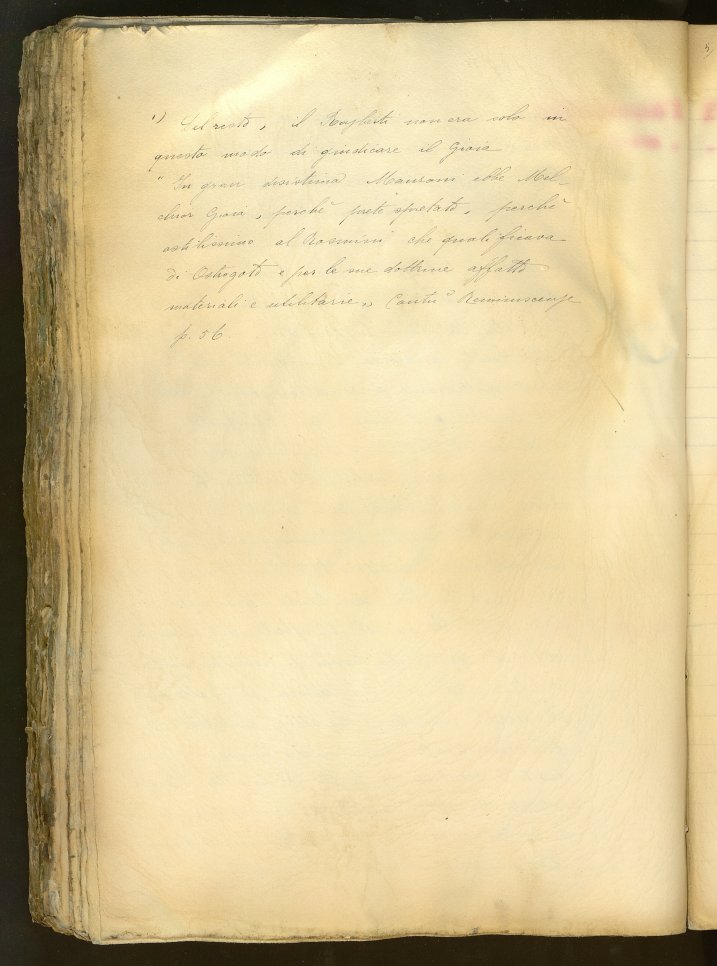 1) Del resto, il Raffaelli non era solo in
questo modo di giudicare il Gioia
"In gran disistima Manzoni ebbe Mel-
chior Gioia, perchè prete spretato, perchè
ostilissimo al Rosmini che qualificava
di Ostrogoto e per le sue dottrine affatto
materiali e utilitarie„ Cantù Reminiscenze
p. 56.